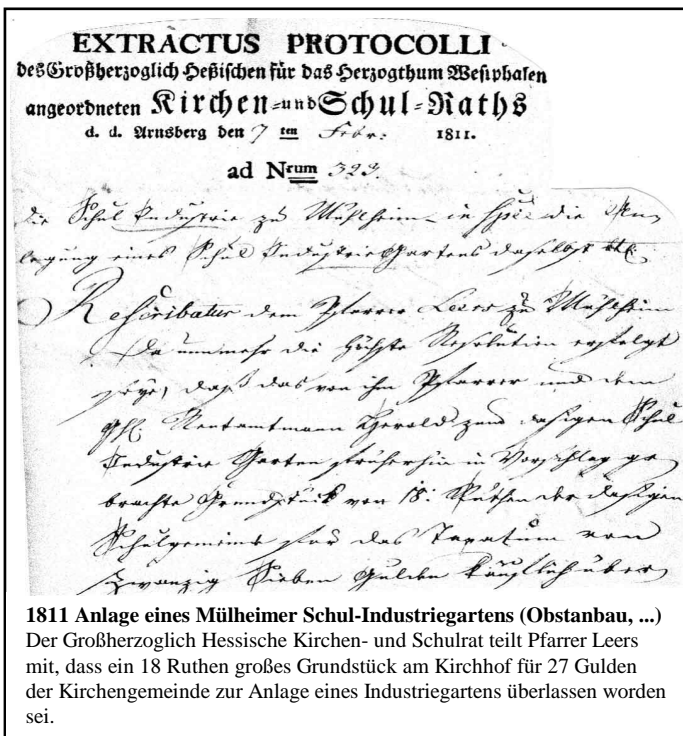 EXTRACTUS PROTOCOLLI
des Großherzoglich Heßischen für das Herzogthum Westphalen
angeordneten Kirchen-und Schul-Raths
d. d. Arnsberg den 7 ten Febr: 1811.
ad Nrum 323.
die Schul Industrie zu Mühlheim in spec. die An-
legung eines Schul Industrie Gartens daselbst
Rescribatur dem Pfarrer Leers zu Mühlheim
da nunmehr die höchste Resolution erfolgt
seye, daß das von ihm Pfarrer und dem
Rentamtmann Herold zum dasigen Schul
Industrie Garten früherhin in Vorschlag ge
brachte Grundstück von 18: Ruthen der dasigen
Schulgemeine für das Taxatum von
zwanzig Sieben Gulden käuflich über
1811 Anlage eines Mülheimer Schul-Industriegartens (Obstanbau, ...)
Der Großherzoglich Hessische Kirchen- und Schulrat teilt Pfarrer Leers
mit, dass ein 18 Ruthen großes Grundstück am Kirchhof für 27 Gulden
der Kirchengemeinde zur Anlage eines Industriegartens überlassen worden
sei.